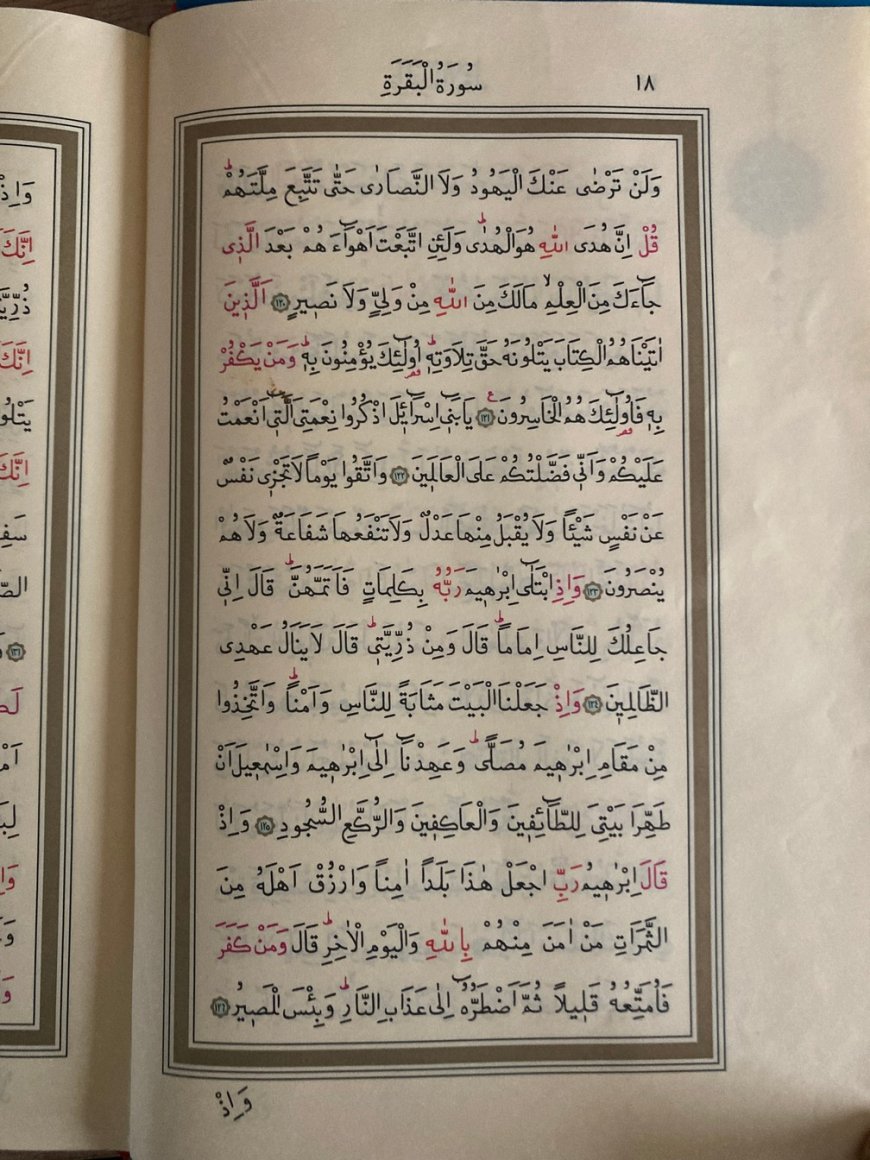 سُورَةُ الْبَقَرَةِ ١٨
وَلَنْ تَرْضٰى عَنْكَ الْيَهُودُ وَلَا النَّصَارٰى حَتّٰى تَتَّبِعَ مِلَّتَهُمْۜ
قُلْ اِنَّ هُدَى اللّٰهِ هُوَ الْهُدٰىۜ وَلَئِنِ اتَّبَعْتَ اَهْوَٓاءَهُمْ بَعْدَ الَّذ۪ى
جَٓاءَكَ مِنَ الْعِلْمِۙ مَالَكَ مِنَ اللّٰهِ مِنْ وَلِىٍّ وَلَا نَص۪يرٍ ﴿١٢٠﴾ اَلَّذ۪ينَ
اٰتَيْنَاهُمُ الْكِتَابَ يَتْلُونَهُ حَقَّ تِلَاوَتِه۪ۜ اُو۬لٰٓئِكَ يُؤْمِنُونَ بِه۪ۜ وَمَنْ يَكْفُرْ
بِه۪ فَاُو۬لٰٓئِكَ هُمُ الْخَاسِرُونَ۟ ﴿١٢١﴾ يَابَن۪ٓى اِسْرَٓائ۪لَ اذْكُرُوا نِعْمَتِىَ الَّت۪ٓى اَنْعَمْتُ
عَلَيْكُمْ وَاَنّ۪ى فَضَّلْتُكُمْ عَلَى الْعَالَم۪ينَ ﴿١٢٢﴾ وَاتَّقُوا يَوْماً لَا تَجْز۪ى نَفْسٌ
عَنْ نَفْسٍ شَيْئاً وَلَا يُقْبَلُ مِنْهَا عَدْلٌ وَلَا تَنْفَعُهَا شَفَاعَةٌ وَلَا هُمْ
يُنْصَرُونَ ﴿١٢٣﴾ وَاِذِ ابْتَلٰٓى اِبْرٰه۪يمَ رَبُّهُ بِكَلِمَاتٍ فَاَتَمَّهُنَّۜ قَالَ اِنّ۪ى
جَاعِلُكَ لِلنَّاسِ اِمَاماًۜ قَالَ وَمِنْ ذُرِّيَّت۪ىۜ قَالَ لَا يَنَالُ عَهْدِى
الظَّالِم۪ينَ ﴿١٢٤﴾ وَاِذْ جَعَلْنَا الْبَيْتَ مَثَابَةً لِلنَّاسِ وَاَمْناًۜ وَاتَّخِذُوا
مِنْ مَقَامِ اِبْرٰه۪يمَ مُصَلًّىۜ وَعَهِدْنَٓا اِلٰٓى اِبْرٰه۪يمَ وَاِسْمٰع۪يلَ اَنْ
طَهِّرَا بَيْتِىَ لِلطَّٓائِف۪ينَ وَالْعَاكِف۪ينَ وَالرُّكَّعِ السُّجُودِ ﴿١٢٥﴾ وَاِذْ
قَالَ اِبْرٰه۪يمُ رَبِّ اجْعَلْ هٰذَا بَلَداً اٰمِناً وَارْزُقْ اَهْلَهُ مِنَ
الثَّمَرَاتِ مَنْ اٰمَنَ مِنْهُمْ بِاللّٰهِ وَالْيَوْمِ الْاٰخِرِۜ قَالَ وَمَنْ كَفَرَ
فَاُمَتِّعُهُ قَل۪يلاً ثُمَّ اَضْطَرُّهُٓ اِلٰى عَذَابِ النَّارِۜ وَبِئْسَ الْمَص۪يرُ ﴿١٢٦﴾
وَاِذْ